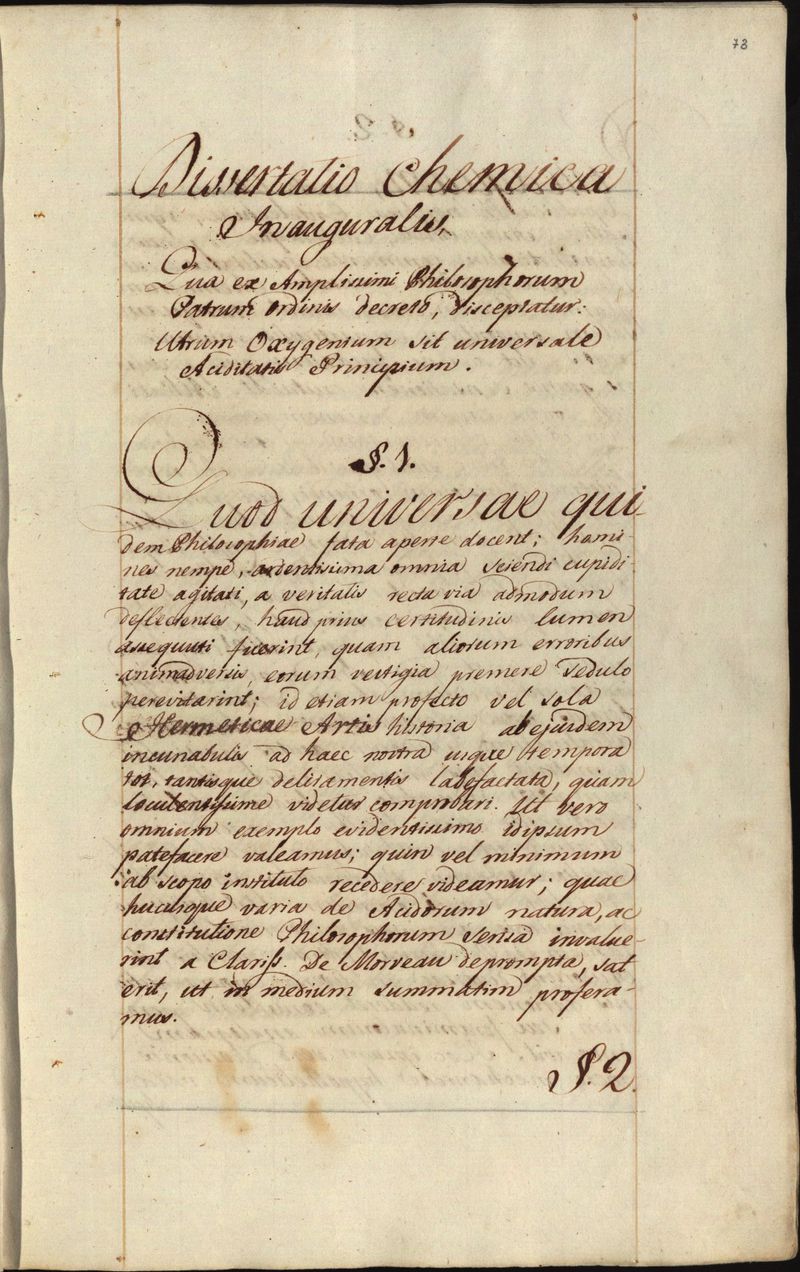 73
Dissertatio Chemica
Inauguralis,
Qua ex Amplissimi Philosophorum
Patrum ordinis decreto, disceptatur:
Utrum Oxygenium sit universale
Aciditatis Principium.
§. 1.
Quod universae qui
dem Philosophiae fata aperte docent; homi-
nes nempe, ardentissima omnia sciendi cupidi-
tate agitati, a veritatis recta via admodum
deflectentes, haud prius certitudinis lumen
assequuti fuerint, quam aliorum erroribus
animadversis, eorum vestigia premere sedulo
perevitarint; id etiam profecto vel sola
Hermeticae Artis historia ab ejusdem
incunabulis ad haec nostra usque tempora
tot, tantisque deliramentis labefactata, quam
loculentissime videtur comprobari. Ut vero
omnium exemplo evidentissimo idipsum
patefacere valeamus; quin vel minimum
ab scopo instituto recedere videamur; quae
hucusque varia de Acidorum natura, ac
constitutione Philosophorum sensa invalue-
rint a Clariss. De Morveau deprompta, sat
erit, ut in medium summatim profera-
mus.
§. 2.